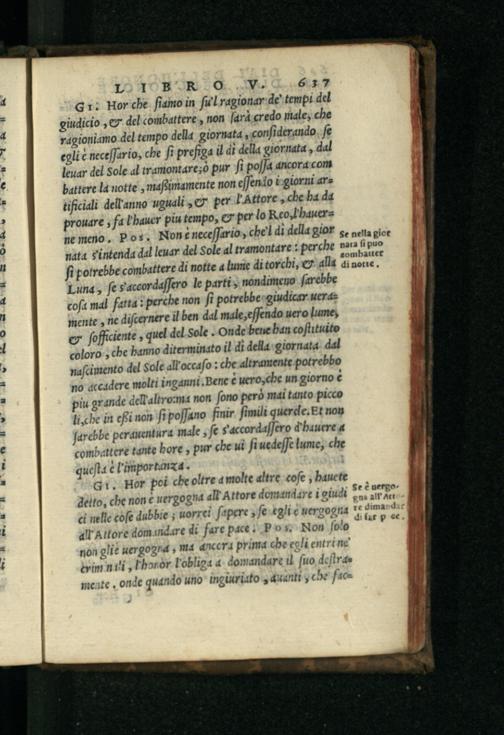 LIBRO V. 637
GI. Hor che siamo in su'l ragionar de' tempi del
giudicio, & del combattere, non sarà credo male, che
ragioniamo del tempo della giornata, considerando se
egli è necessario, che si prefiga il dì della giornata, dal
leuar del Sole al tramontare; ò pur si possa ancora com
battere la notte, massimamente non essendo i giorni ar=
tificiali dell'anno uguali, & per l'Attore, che ha da
prouare, fa l'hauer piu tempo, & per lo Reo, l'hauer=
ne meno. POS. Non è necessario, che'l dì della gior
nata s'intenda dal leuar del Sole al tramontare: perche
si potrebbe combattere di notte a lume di torchi, & alla
Luna, se s'accordassero le parti, nondimeno sarebbe
cosa mal fatta: perche non si potrebbe giudicar uera=
mente, ne discernere il ben dal male, essendo uero lume,
& sofficiente, quel del Sole. Onde bene han costituito
coloro, che hanno diterminato il dì della giornata dal
nascimento del Sole all'occaso: che altramente potrebbo
no accadere molti inganni. Bene è uero, che un giorno è
piu grande dell'altro: ma non sono però mai tanto picco
li, che in essi non si possano finir simili querele. Et non
sarebbe perauentura male, se s'accordassero d'hauere a
combattere tante hore, pur che ui si uedesse lume, che
questa è l'importanza.
GI. Hor poi che oltre a molte altre cose, hauete
detto, che non è uergogna all'Attore domandare i giudi
ci nelle cose dubbie; uorrei sapere, se egli è uergogna
all'Attore domandare di fare pace. POS. Non solo
non gli è uergogna, ma ancora prima che egli entri ne'
criminali, l'honor l'obliga a domandare il suo destra=
mente. onde quando uno ingiuriato, auanti, che fac=
Se nella gior
nata si puo
combatter
di notte.
Se è uergo-
gna all'Atto-
re dimandar
di far pace.